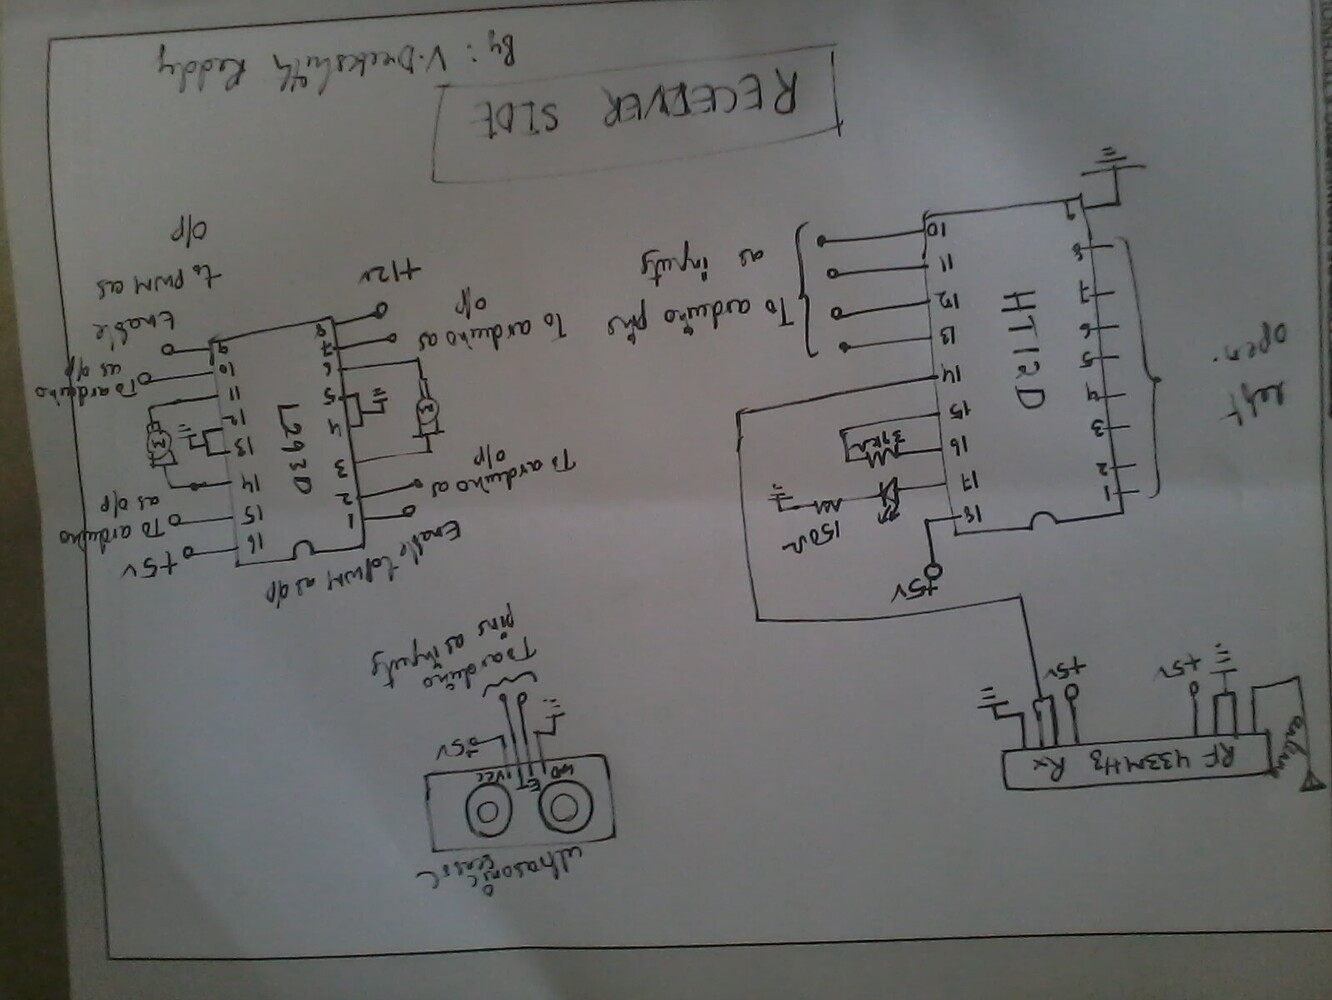 RECEIVER SIDE
By: V. Deekshith Reddy
ultrasonic
VCC
+5v
To arduino
pins as inputs
RF 433MHz Rx
+5v
+5v
HT12D
1
2
3
4
5
6
7
8
9
left
open.
18
17
16
15
14
13
12
11
10
+5v
150Ω
To arduino pins
as inputs
L293D
1
2
3
4
5
6
7
8
16
15
14
13
12
11
10
9
Enable to PWM as o/p
To arduino as
o/p
M
To arduino as
o/p
+12v
+5v
To arduino
as o/p
M
To arduino
as o/p
Enable
to PWM as
o/p